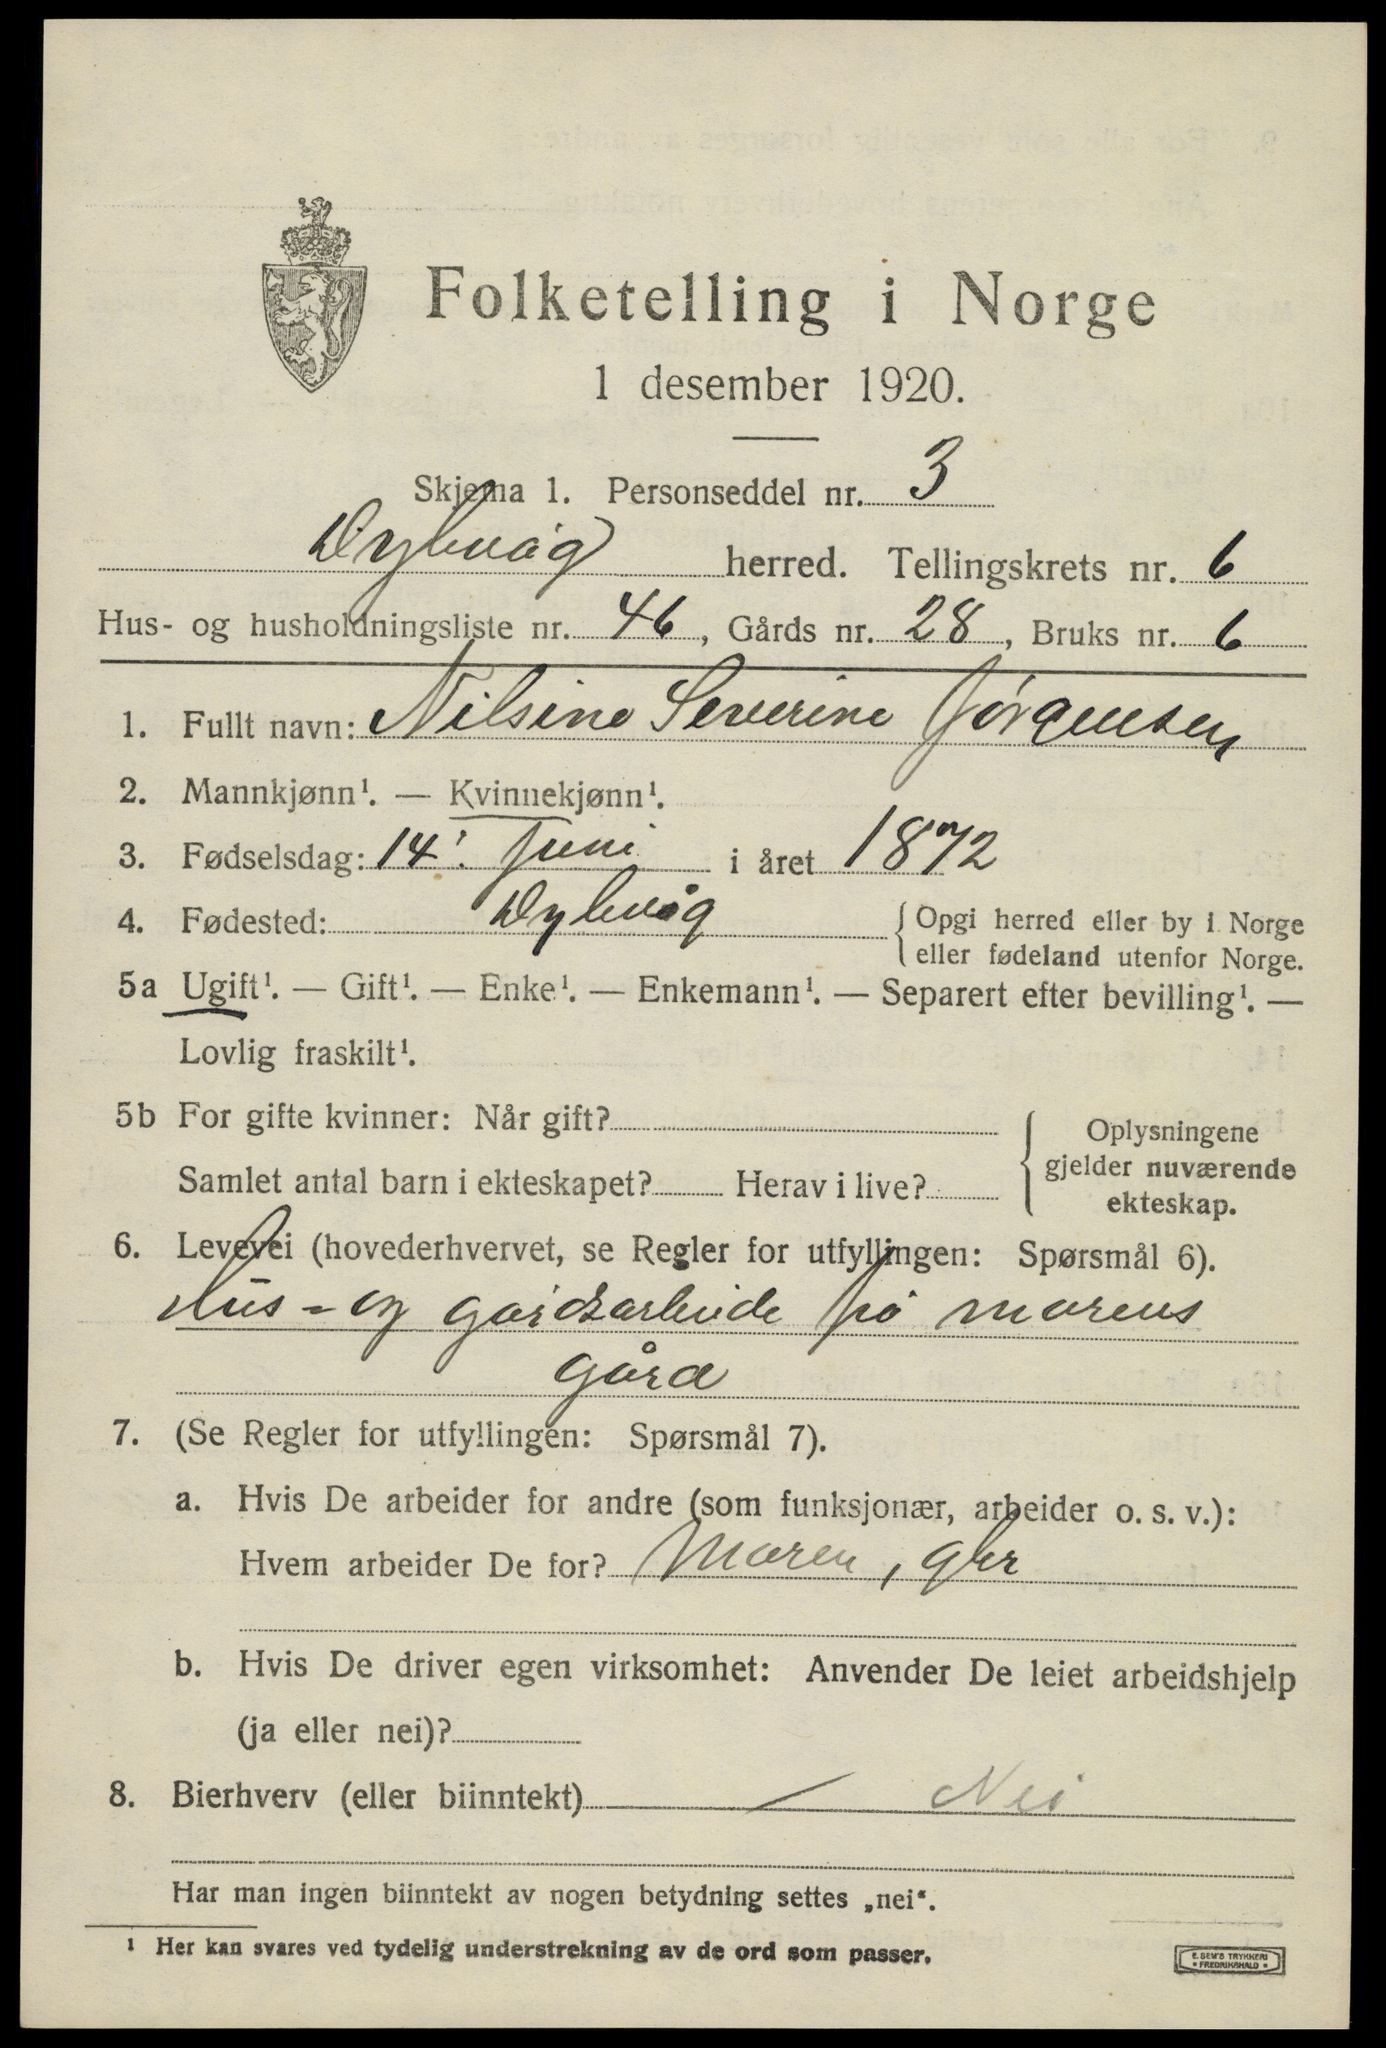 Folketelling i Norge
1 desember 1920.
Skjema 1. Personseddel nr. 3
Dybvåg herred. Tellingskrets nr. 6
Hus- og husholdningsliste nr. 46, Gårds nr. 28, Bruks nr. 6
1. Fullt navn: Nilsine Severine Jörgensen
2. Mannkjønn¹. — Kvinnekjønn¹.
3. Fødselsdag: 14. Juni i året 1872
4. Fødested: Dybvåg {Opgi herred eller by i Norge
eller fødeland utenfor Norge.
5a Ugift¹. — Gift¹. — Enke¹. — Enkemann¹. — Separert efter bevilling¹. —
Lovlig fraskilt¹.
5b For gifte kvinner: Når gift?
Samlet antal barn i ekteskapet? Herav i live?
Oplysningene
gjelder nuværende
ekteskap.
6. Levevei (hovederhvervet, se Regler for utfyllingen: Spørsmål 6).
Hus- og gårdsarbeide på morens
gård
7. (Se Regler for utfyllingen: Spørsmål 7).
a. Hvis De arbeider for andre (som funksjonær, arbeider o. s. v.):
Hvem arbeider De for? Moren, gbr
b. Hvis De driver egen virksomhet: Anvender De leiet arbeidshjelp
(ja eller nei)?
8. Bierhverv (eller biinntekt) — Nei
Har man ingen biinntekt av nogen betydning settes „nei“.
¹ Her kan svares ved tydelig understrekning av de ord som passer.
E. SEM'S TRYKKERI
FREDRIKSHALD